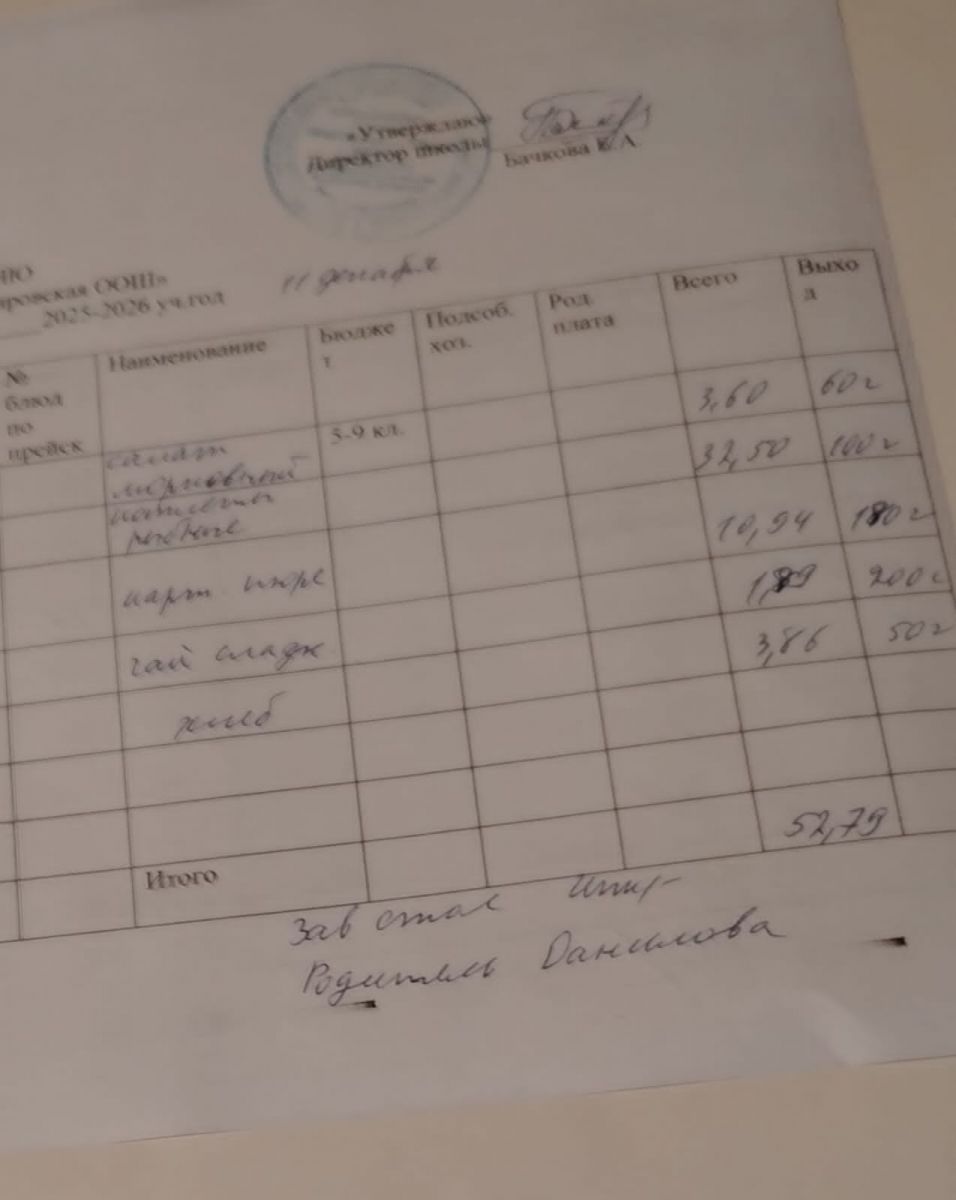 «Утверждаю»
Директор школы Бачкова Е.А.
ИЮ
ировская ООШ»
2025-2026 уч.год 11 декабря
№ блюд по прейск Наименование Бюджет Подсоб. хоз. Род. плата Всего Выход
5-9 кл.
салат морковный 3,60 60 г
котлеты рыбные 32,50 100 г
карт. пюре 10,94 180 г
чай сладк 1,89 200 г
хлеб 3,86 50 г
Итого 52,79
Зав стол
Родитель Данилова